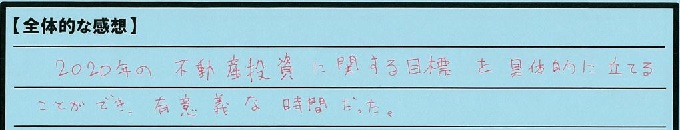 【全体的な感想】
2020年の 不動産投資に関する目標を具体的に立てる
ことができ、有意義な時間だった。